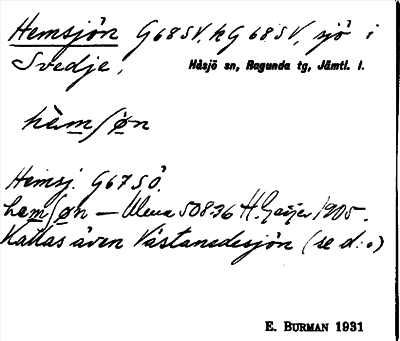 Hemsjön G68SV, h G68SV, sjö i
Svedje,
Håsjö sn, Ragunda tg, Jämtl. l.
hèmʃøn
Hemsj. G67SÖ.
hemʃøn — Uleua 508:36 H. Geijer 1905.
Kallas även Västanedesjön (se d:o)
E. BURMAN 1931